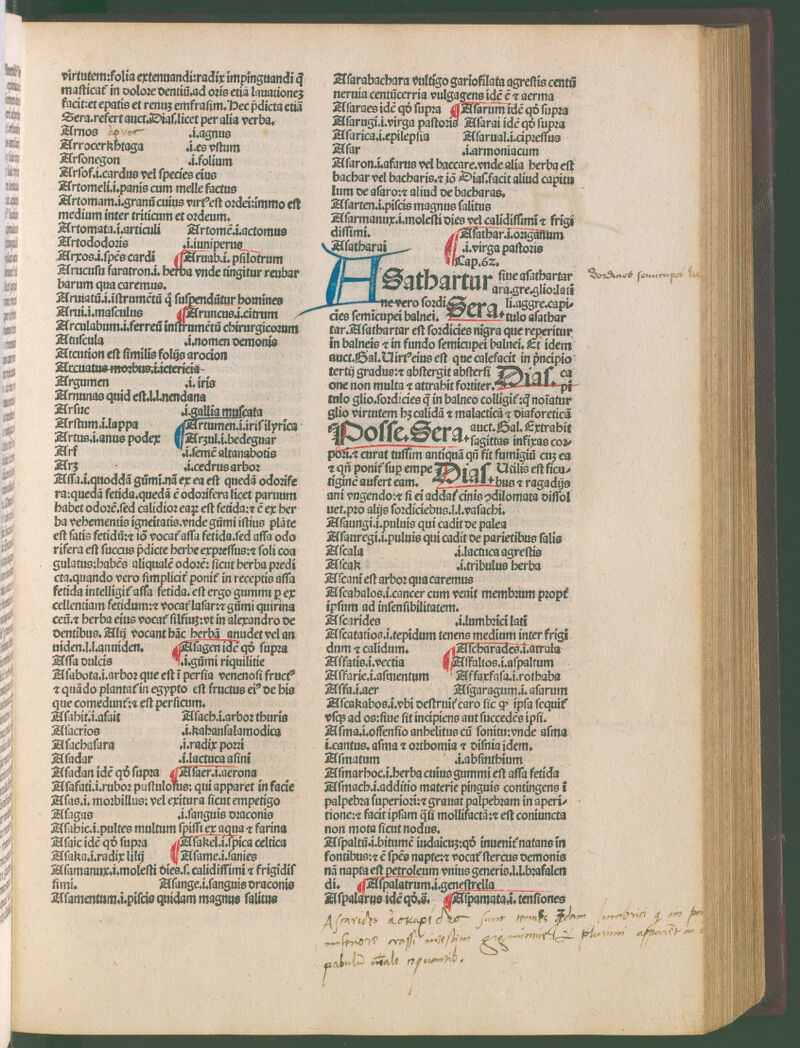 virtutem:folia extenuandi:radix impinguandi q̃
masticat̃ in dolore dentiũ.ad oris etiã lauationeʒ
facit:et epatis et renuʒ emfrasim. Hec p̃dicta etiã
Sera.refert auct.Dias.licet per alia verba.
Arnos .i.agnus
Arrocerkhtaga .i.es vstum
Arsonegon .i.folium
Arsof.i.cardus vel species eius
Artomeli.i.panis cum melle factus
Artomam.i.granũ cuius virtꝰest ordei:immo est
medium inter triticum et ordeum.
Artomata.i.articuli Artomẽ.i.actomus
Artododoris .i.iuniperus
Arxos.i.spẽs cardi Aruab.i. psilotrum
Arucusu faratron.i. herba vnde tingitur reubar
barum qua caremus.
Aruiatũ.i.istrumẽtũ q̃ suspendũtur homines
Arui.i.masculus Aruncus.i.citrum
Arculabum.i.ferreũ instrumẽtũ chirurgicozum
Atuscula .i.nomen demonis
Atcution est similis folijs arocion
Arcuatus morbus.i.ictericia
Argumen .i. iris
Armunas quid est.l.l.nendana
Arsuc .i.gallia muscata
Arstum.i.lappa Artumen.i.iris illyrica
Artus.i.anus podex Arzul.i.bedeguar
Arf .i.semẽ altanabotis
Arʒ .i.cedrus arbor
Assa.i.quoddã gũmi.nã ex ea est quedã odorife
ra:quedã fetida.quedã ẽ odorifera licet paruum
habet odorẽ.sed calidior eaꝝ est fetida:⁊ ẽ ex her
ba vehementis igneitatis.vnde gũmi istius plãte
est satis fetidũ:⁊ iõ vocat̃ assa fetida.sed assa odo
rifera est succus p̃dicte herbe expressus:⁊ soli coa
gulatus:habẽs aliqualẽ odorẽ: sicut herba predi
cta.quando vero simplicit̃ ponit̃ in receptis assa
fetida intelligit̃ assa fetida. est ergo gummi ꝑ ex
cellentiam fetidum:⁊ vocat̃ lasar:⁊ gũmi quirina
ceũ.⁊ herba eius vocat̃ silfiuʒ:vt in alexandro de
dentibus. Alij vocant hãc herbã anudet vel an
niden.l.l.anniden. Asagen idẽ qõ supra
Assa dulcis .i.gũmi riquilitie
Asabota.i.arbor que est ĩ persia venenosi fructꝰ
⁊ quãdo plantat̃ in egypto est fructus eiꝰ de his
que comedunt̃:⁊ est persicum.
Asabit.i.asait Asach.i.arbor thuris
Asacrios .i.kahansalamodica
Asachasara .i.radix porri
Asadar .i.lactuca asini
Asadan idẽ qõ supra Asaer.i.aerona
Asafati.i.rubor pustulosus: qui apparet in facie
Asas.i. morbillus: vel exitura sicut empetigo
Asagas .i.sanguis draconis
Asahic.i.pultes multum spissi ex aqua ⁊ farina
Asaic idẽ qõ supra Asakel.i.spica celtica
Asaka.i.radix lilij Asame.i.sanies
Asamanux.i.molesti dies.s. calidissimi ⁊ frigidis
simi. Asange.i.sanguis draconis
Asamentum.i.piscis quidam magnus salitus
Asarabachara vultigo gariofilata agrestis centũ
neruia centũcerria vulgagens idẽ ẽ ⁊ aerma
Asaraes idẽ qõ supra Asarum idẽ qõ supra
Asarugi.i.virga pastoris Asarai idẽ qõ supra
Asarica.i.epilepsia Asarual.i.cipressus
Asar .i.armoniacum
Asaron.i.asarus vel baccare.vnde alia herba est
bachar vel bacharis.⁊ iõ Dias.facit aliud capitu
lum de asaro:⁊ aliud de bacharas.
Asarten.i.piscis magnus salitus
Asarmanux.i.molesti dies vel calidissimi ⁊ frigi
dissimi. Asathar.i.origanum
Asatharai .i.virga pastoris
Cap.62.
ASathartur siue asathartar
ara.gre.glio:latĩ
ne vero sordi Sera li.aggre.capi-
cies semicupei balnei. tulo asathar
tar.Asathartar est sordicies nigra que reperitur
in balneis ⁊ in fundo semicupei balnei. Et idem
auct.Gal.Uirtꝰeius est que calefacit in p̃ncipio
tertij gradus:⁊ abstergit abstersi Dias. ca
one non multa ⁊ attrahit fortiter. pi
tulo glio.sordicies q̃ in balneo colligit̃:q̃ noĩatur
glio virtutem hʒ calidã ⁊ malacticã ⁊ diaforeticã
Posse.Sera. auct.Gal. Extrabit
sagittas infixas cor-
pori.⁊ curat tussim antiquã qñ fit fumigiũ cuʒ ea
⁊ qñ ponit̃ sup empe Dias. Utilis est ficu-
tigine aufert eam. bus ⁊ ragadijs
ani vngendo:⁊ si ei addat̃ cinis ↄdilomata dissol
uet.pro alijs sordiciebus.l.l.vasachi.
Asaungi.i.puluis qui cadit de palea
Asauregi.i.puluis qui cadit de parietibus salis
Ascala .i.lactuca agrestis
Ascak .i.tribulus herba
Ascani est arbor qua caremus
Ascahalos.i.cancer cum venit membrum propt̃
ipsum ad insensibilitatem.
Ascarides .i.lumbrici lati
Ascatatios.i.tepidum tenens medium inter frigi
dum ⁊ calidum. Ascharades.i.atrala
Assatis.i.vectia Assaltos.i.aspaltum
Assarie.i.asmentum Assaxfasa.i.rothaba
Assa.i.aer Asgaragum.i. asarum
Ascakabos.i.vbi destruit̃ caro sic ꝙ ipsa sequit̃
vsqꝫ ad os:siue sit incipiens aut succedẽs ipsi.
Asma.i.offensio anhelitus cũ sonitu:vnde asma
i.cantus. asma ⁊ orthomia ⁊ disnia idem.
Asmatum .i.absinthium
Asmarhoc.i.herba cuius gummi est assa fetida
Asmach.i.additio materie pinguis contingens ĩ
palpebra superiori:⁊ grauat palpebram in aperi-
tione:⁊ facit ipsam q̃si mollifactã:⁊ est coniuncta
non mota sicut nodus.
Aspaltũ.i.bitumẽ iudaicuʒ:qõ inuenit̃ natans in
fontibus:⁊ ẽ spẽs napte:⁊ vocat̃ stercus demonis
nã napta est petroleum vnius generis.l.l.brasalen
di. Aspalatrum.i.genestrella
Aspalarus idẽ qõ.s. Aspamata.i. tensiones